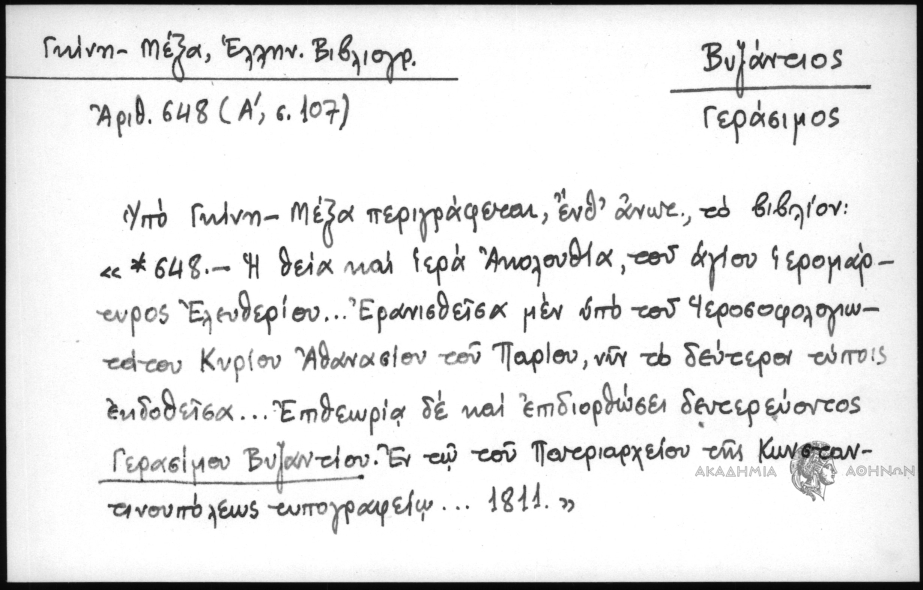 Γκίνη - Μέξα, Ἑλλην. Βιβλιογρ.
Ἀριθ. 648 (Α΄, σ. 107)
Βυζάντιος
Γεράσιμος
Ὑπό Γκίνη - Μέξα περιγράφεται, ἔνθ' ἄνωτ., τό βιβλίον:
« *648. - Ἡ θεία καί ἱερά Ἀκολουθία, τοῦ ἁγίου ἱερομάρ-
τυρος Ἐλευθερίου... Ἐρανισθεῖσα μέν ὑπό τοῦ Ἱεροσοφολογιω-
τάτου Κυρίου Ἀθανασίου τοῦ Παρίου, νῦν τό δεύτερον τύποις
ἐκδοθεῖσα... Ἐπιθεωρίᾳ δέ καί ἐπιδιορθώσει δευτερεύοντος
Γερασίμου Βυζαντίου. Ἐν τῷ τοῦ Πατριαρχείου τῆς Κωνσταν-
τινουπόλεως τυπογραφείῳ... 1811. »
ΑΚΑΔΗΜΙΑ ΑΘΗΝΩΝ